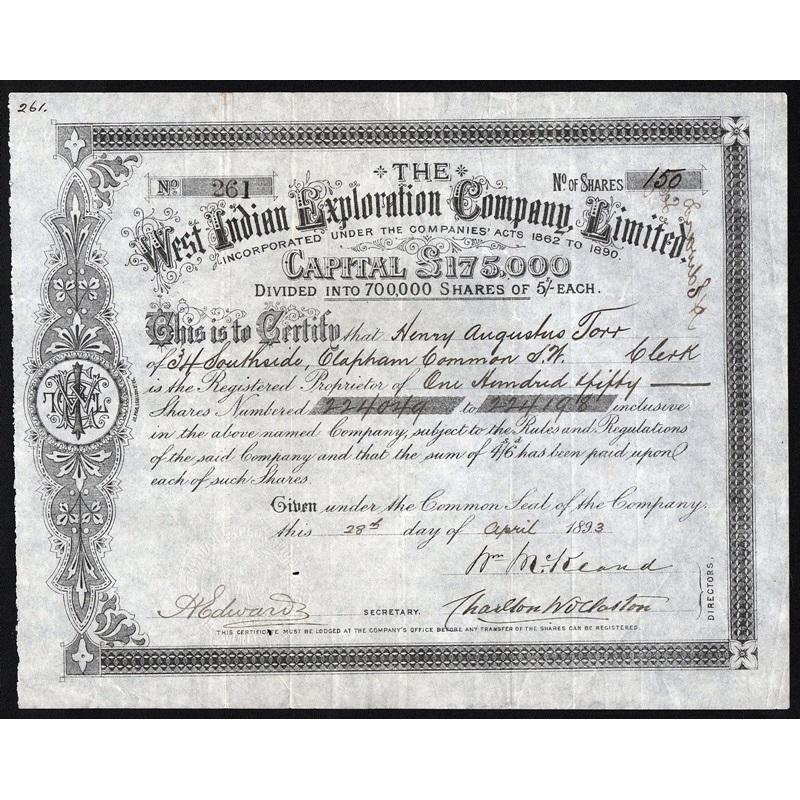 261.
THE
No 261
No OF SHARES 150
West Indian Exploration Company, Limited.
INCORPORATED UNDER THE COMPANIES' ACTS 1862 TO 1890.
CAPITAL £175,000
DIVIDED INTO 700,000 SHARES OF 5/- EACH.
This is to Certify that Henry Augustus Torr
of 34 Southside, Clapham Common S.W. Clerk
is the Registered Proprietor of One Hundred & fifty
Shares Numbered 224049 to 224198 inclusive
in the above named Company, subject to the Rules and Regulations
of the said Company and that the sum of 4/6d has been paid upon
each of such Shares.
Given under the Common Seal of the Company.
this 28th day of April 1893
Wm McKeand
DIRECTORS.
A Edwards SECRETARY. Charlton Wollaston
THIS CERTIFICATE MUST BE LODGED AT THE COMPANY'S OFFICE BEFORE ANY TRANSFER OF THE SHARES CAN BE REGISTERED.